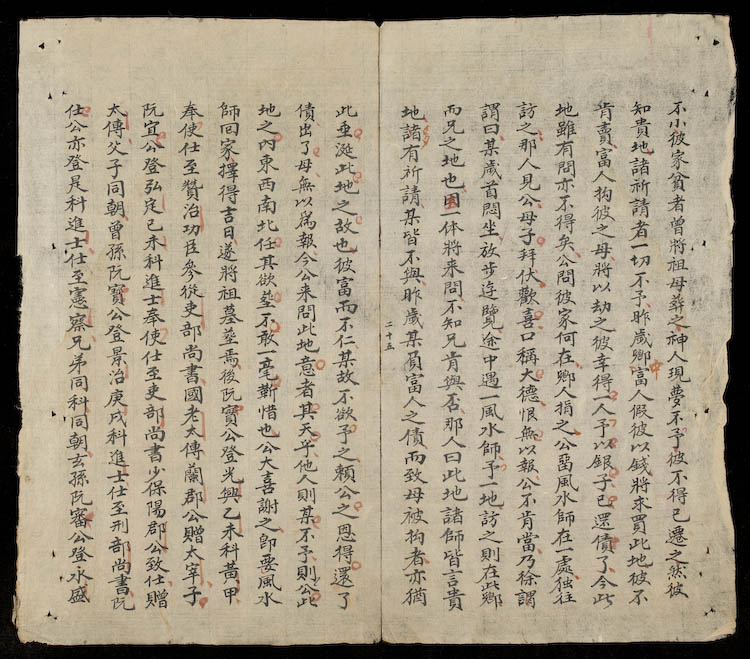 不小彼家貧者曾將祖母葬之神人現夢不予彼不得已遷之然彼
知貴地諸祈請者一切不予昨歲鄉中富人假彼以錢將來買此地彼不
肯賣富人拘彼之母將以劫之彼幸得一人予以銀子已還債了今此
地雖有問亦不得矣公問彼家何在鄉人指之公畱風水師在一處独往
訪之那人見公母子拜伏歡喜口稱大德恨無以報公不肯當乃徐謂
謂曰某歲首悶坐放步逰覽途中遇一風水師予一地訪之則在此鄉
而兄之地也因一体將来問不知兄肯與否那人曰此地諸師皆言貴
地諸有祈請某皆不與昨歲某負富人之債而致母被拘者亦猶
二十五
此垂涎此地之故也彼富而不仁某故不欲予之頼公之恩得還了
債出了母無以爲報今公来問此地意者其天乎他人則某不予則公此
地之内東西南北任其欲塟一不敢一毫靳惜也公大喜謝之即要風水
師回家擇得吉日遂將祖墓塟焉後阮實公登光興乙未科黃甲
奉使仕至贊治功臣參從吏部尚書國老太傅蘭郡公贈太宰子
阮宜公登弘定己未科進士奉使仕至吏部尚書少保陽郡公致仕贈
太傅父子同朝曾孫阮實公登景治庚戌科進士仕至刑部尚書阮
仕公亦登是科進士仕至憲察兄弟同科同朝玄孫阮審公登永盛